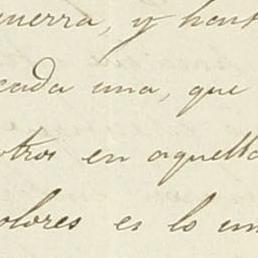 guerra, y hast
cada una, que
otros en aquella
olores es lo un